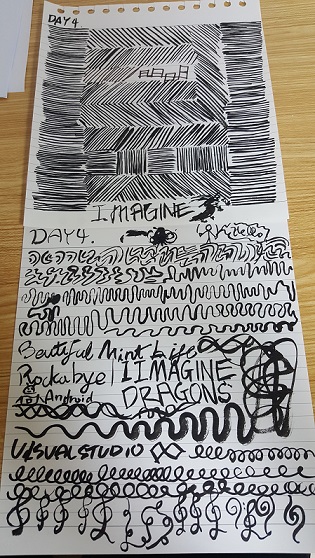 DAY 4
IMAGINE
DAY4.
Beautiful Mint Life
Rockabye
IIMAGINE
DRAGONS
Android
VISUALSTUDIO